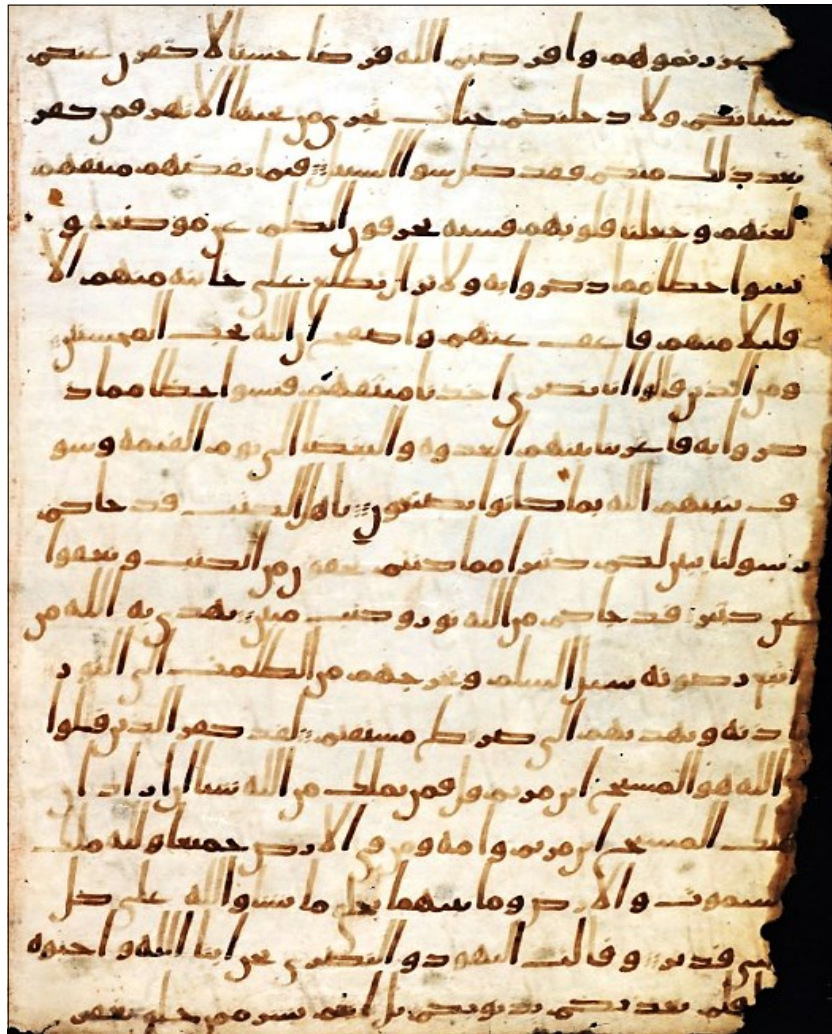 عزرتموهم واقرضتم الله قرضا حسنا لاكفرن عنكم
سياتكم ولادخلنكم جنات تجري من تحتها الانهر فمن كفر
بعد ذلك منكم فقد ضل سوا السبيل فبما نقضهم ميثقهم
لعنهم وجعلنا قلوبهم قسية يحرفون الكلم عن موضعه و
نسوا حظا مما ذكروا به ولا تزال تطلع على خاينة منهم الا
قليلا منهم فاعف عنهم واصفح ان الله يحب المحسنين
ومن الذين قالوا انا نصرى اخذنا ميثقهم فنسوا حظا مما ذ
كروا به فاغرينا بينهم العدوة والبغضا الى يوم القيمة وسو
ف ينبيهم الله بما كانوا يصنعون ياهل الكتب قد جاكم
رسولنا يبين لكم كثيرا مما كنتم تخفون من الكتب ويعفوا
عن كثير قد جاكم من الله نور وكتب مبين يهدي به الله من
اتبع رضونه سبل السلم ويخرجهم من الظلمت الى النور
باذنه ويهديهم الى صرط مستقيم لقد كفر الذين قلوا
الله هو المسيح ابن مريم قل فمن يملك من الله شيا ان اراد ان
يهلك المسيح ابن مريم وامه ومن في الارض جميعا ولله ملك
السموت والارض وما بينهما يخلق ما يشا والله على كل
شي قدير وقالت اليهود والنصرى نحن ابنا الله واحبوه
فلم يعذبكم بذنوبكم بل انتم بشر ممن خلق يغفر